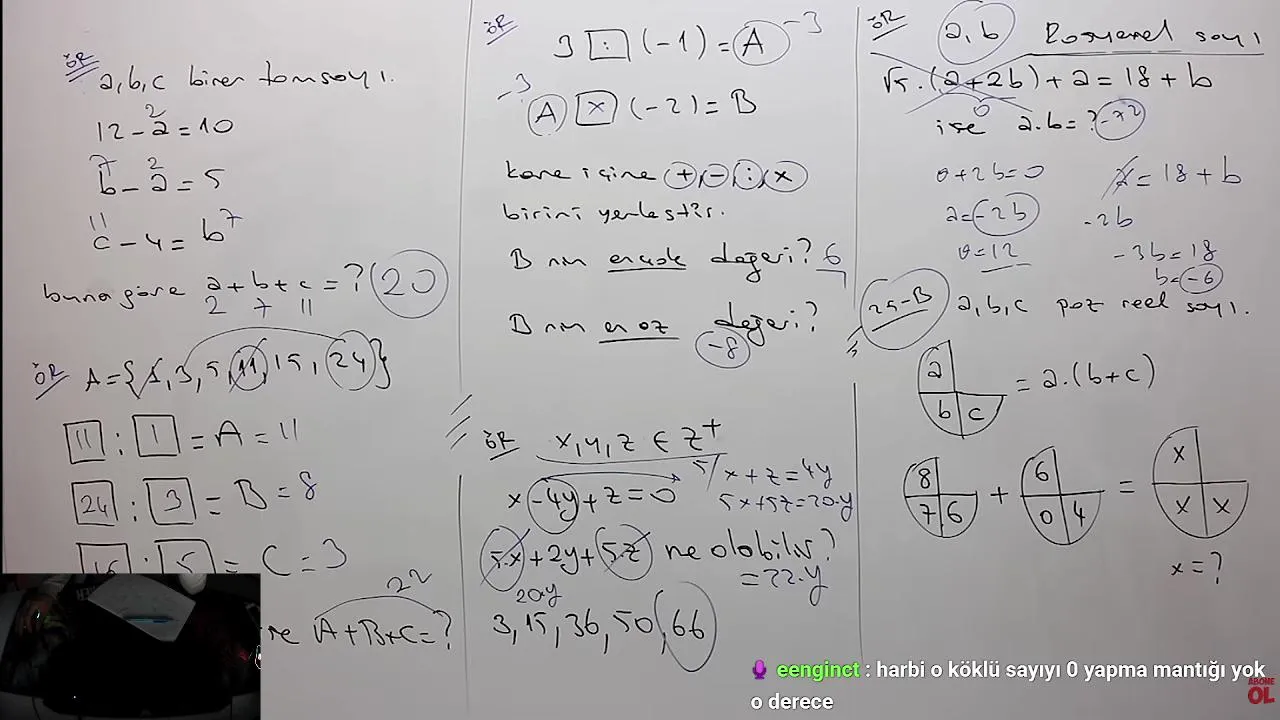 ÖR
a,b,c birer tamsayı.
12 - a = 10
2
b - a = 5
7 2
c - 4 = b
11 7
buna göre a+b+c = ? 20
2 7 11
ÖR
A = {1, 3, 5, 11, 15, 24}
11 : 1 = A = 11
24 : 3 = B = 8
15 : 5 = C = 3
22
A+B+C = ?
ÖR
3 : (-1) = A -3
-3
A x (-2) = B
kare içine +, -, :, x
birini yerleştir.
B nin en çok değeri? 6
B nin en az değeri?
-8
ÖR
x, y, z ∈ Z+
x - 4y + z = 0
5/ x + z = 4y
5x + 5z = 20.y
5.x + 2y + 5z ne olabilir?
20y
= 22.y
3, 15, 36, 50, 66
ÖR
a, b Rasyonel sayı
√5 . (a+2b) + a = 18 + b
0
ise a.b = ? -72
a + 2b = 0
a = -2b
a = 12
a = 18 + b
-2b
-3b = 18
b = -6
25-B
a, b, c poz reel sayı.
a b c = a.(b+c)
8 7 6 + 6 0 4 = x x x
x = ?
eenginct : harbi o köklü sayıyı 0 yapma mantığı yok
o derece
ABONE
OL